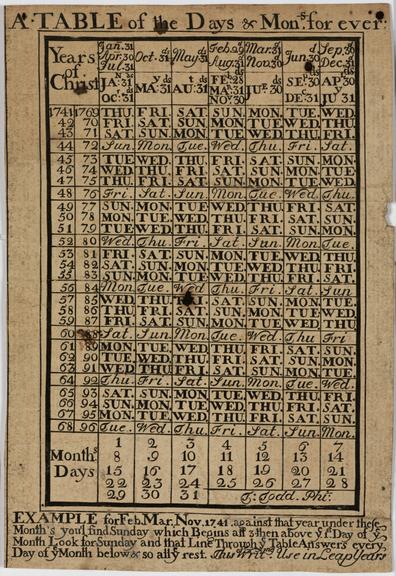 A TABLE of the Days & Mon.s for ever:
Years of Christ
Jan. 31 Oct. 31 May. 31 Feb. Mar. 31 Jun. 30 Sep. 30
Apr. 30 Aug. 31 Nov. 30 Dec. 31
Jul. 31
JA: 31 MA: 31 AU: 31 FE: 28 JU: 30 SEP: 30 AP: 30
OC: 31 MA: 31 DE: 31 JU 31
NOV 30
1741 1769 THU. FRI. SAT. SUN. MON. TUE. WED.
42 70 FRI. SAT. SUN. MON. TUE. WED. THU.
43 71 SAT. SUN. MON. TUE. WED. THU. FRI.
44 72 Sun. Mon. Tue. Wed. Thu. Fri. Sat.
45 73 TUE. WED. THU. FRI. SAT. SUN. MON.
46 74 WED. THU. FRI. SAT. SUN. MON. TUE.
47 75 THU. FRI. SAT. SUN. MON. TUE. WED.
48 76 Fri. Sat. Sun. Mon. Tue. Wed. Thu.
49 77 SUN. MON. TUE. WED. THU. FRI. SAT.
50 78 MON. TUE. WED. THU. FRI. SAT. SUN.
51 79 TUE. WED. THU. FRI. SAT. SUN. MON.
52 80 Wed. Thu. Fri. Sat. Sun. Mon. Tue.
53 81 FRI. SAT. SUN. MON. TUE. WED. THU.
54 82 SAT. SUN. MON. TUE. WED. THU. FRI.
55 83 SUN. MON. TUE. WED. THU. FRI. SAT.
56 84 Mon. Tue. Wed Thu. Fri. Sat. Sun
57 85 WED. THU. FRI. SAT. SUN. MON. TUE.
58 86 THU. FRI. SAT. SUN. MON. TUE. WED.
59 87 FRI. SAT. SUN. MON. TUE. WED. THU
60 88 Sat. Sun. Mon. Tue. Wed. Thu Fri
61 89 MON. TUE. WED. THU. FRI. SAT. SUN.
62 90 TUE. WED. THU. FRI. SAT. SUN. MON.
63 91 WED. THU. FRI. SAT. SUN. MON. TUE.
64 92 Thu. Fri. Sat. Sun. Mon. Tue. Wed.
65 93 SAT. SUN. MON. TUE. WED. THU. FRI.
66 94 SUN. MON. TUE. WED. THU. FRI. SAT.
67 95 MON. TUE. WED. THU. FRI. SAT. SUN.
68 96 Tue. Wed. Thu. Fri. Sat. Sun. Mon.
Month.s Days
1 2 3 4 5 6 7
8 9 10 11 12 13 14
15 16 17 18 19 20 21
22 23 24 25 26 27 28
29 30 31 T: Todd. Phi:
EXAMPLE for Feb. Mar. Nov. 1741 against that year under these
Month's you'l find Sunday which Begins all 3 then above y.e 1.st Day of y.e
Month Look for Sunday and that Line Through y.e Table Answers every
Day of y.e Month below & so all y.e rest. This Writ.g Use in Leap Years